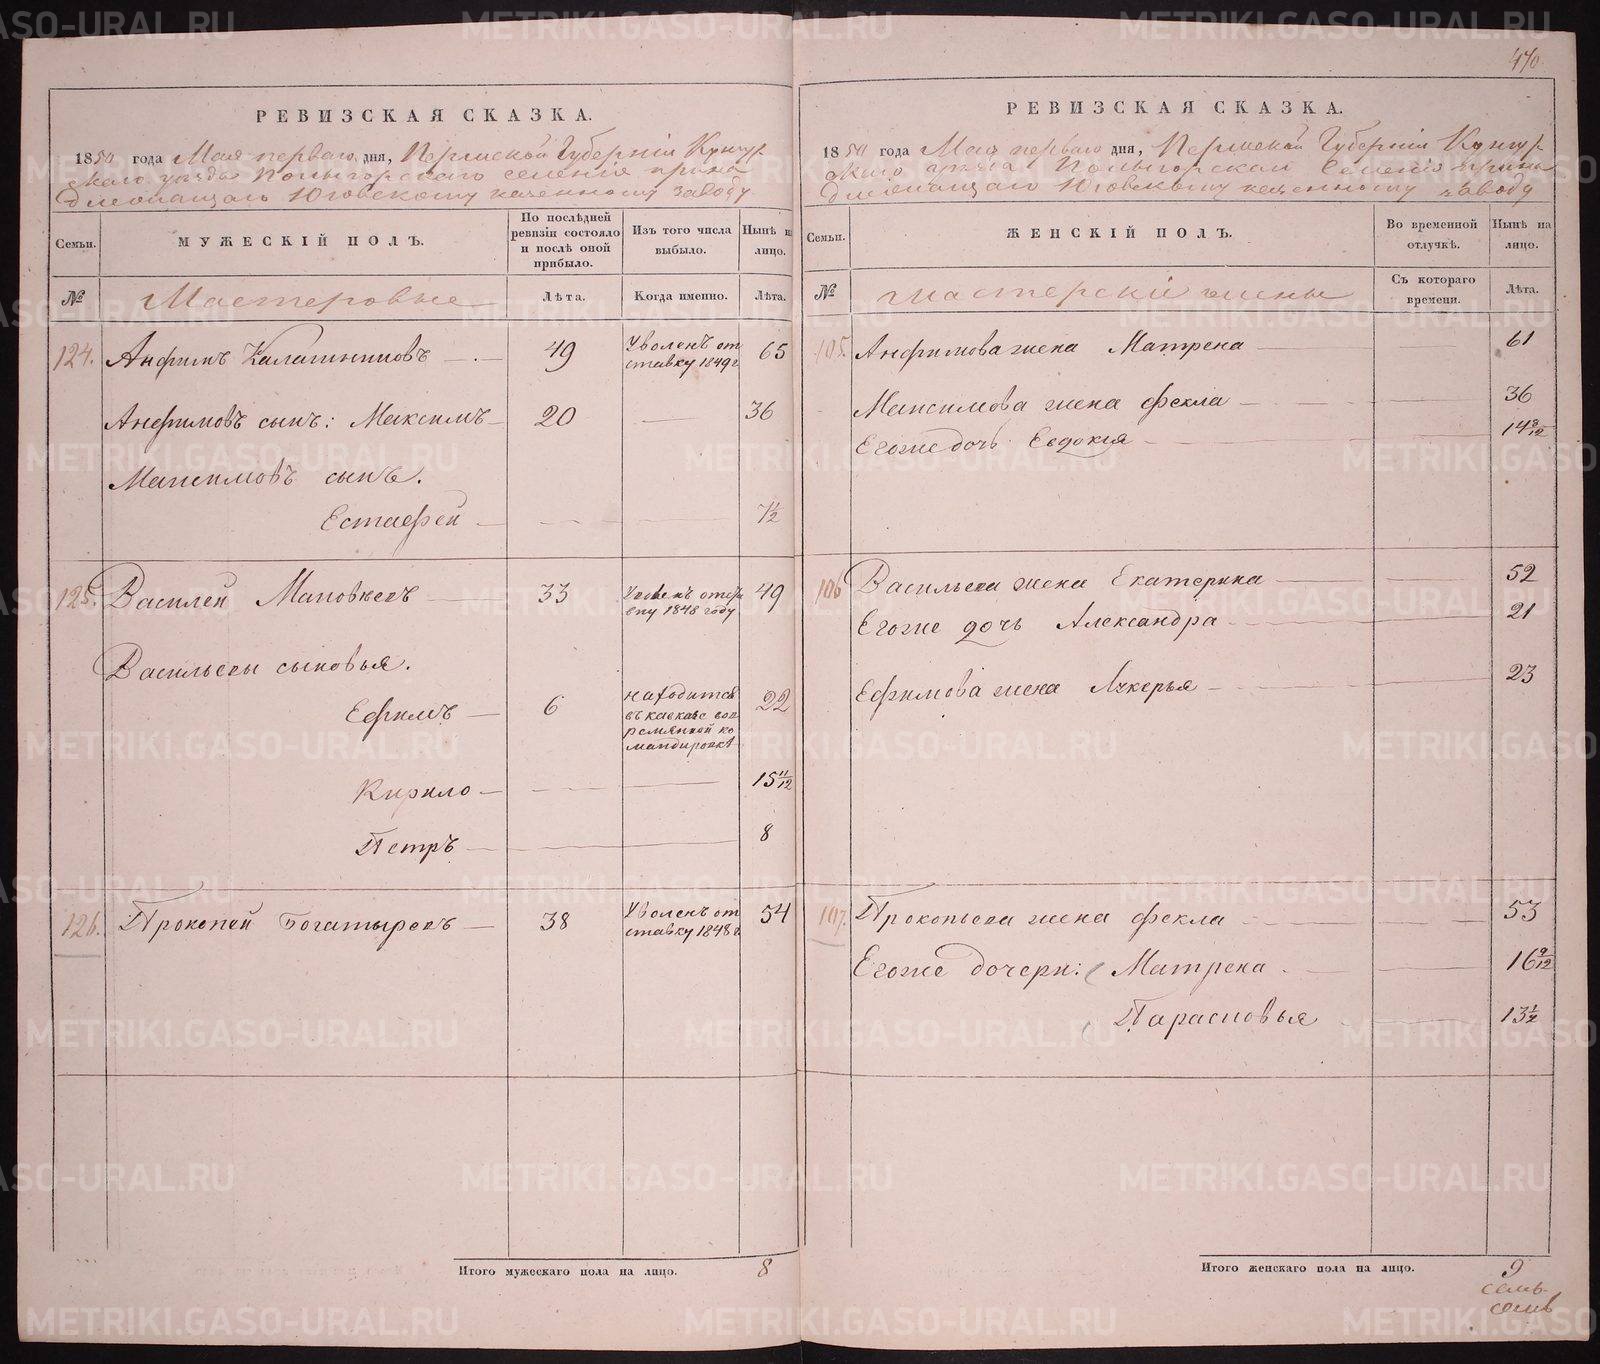 470
РЕВИЗСКАЯ СКАЗКА.
1850 года Мая перваго дня, Пермской Губерніи Кунгур-
скаго уезда селенія прина
длежащаго Юговскому казенному заводу
Семьи.
МУЖЕСКІЙ ПОЛЪ.
По послѣдней ревизіи состояло и послѣ оной прибыло.
Изъ того числа выбыло.
Нынѣ на лицо.
№
Мастеровые
Лѣта.
Когда именно.
Лѣта.
124. Анфимъ Калашниковъ 49 Уволенъ от 65
ставку 1849 г
Анфимовъ сынъ: Максимъ 20 36
Максимовъ сынъ.
Естафей 7 1/2
125. Василей 33 49
1848 году
Васильевы сыновья.
Ефимъ 6 находится 22
въ кавказе во в
ременной ко
мандировкѣ
Кирило 15 11/12
Петръ 8
126. Прокопей Богатыревъ 38 Уволенъ от 54
ставку 1848 г.
Итого мужескаго пола на лицо. 8
РЕВИЗСКАЯ СКАЗКА.
1850 года Мая перваго дня, Пермской Губерніи Кунгур
скаго уезда селенія прина
длежащаго Юговскому казенному заводу
Семьи.
ЖЕНСКІЙ ПОЛЪ.
Во временной отлучкѣ.
Нынѣ на лицо.
№
мастерскіе жены
Съ котораго времени.
Лѣта.
105. Анфимова жена Матрена 61
Максимова жена Фекла 36
Егоже дочь Евдокия 14 8/12
106 Васильева жена Екатерина 52
Егоже дочь Александра 21
Ефимова жена Лукерья 23
107. Прокопьева жена Фекла 53
Егоже дочери: Матрена 16 9/12
Парасковья 13 1/2
Итого женскаго пола на лицо. 9
METRIKI.GASO-URAL.RU